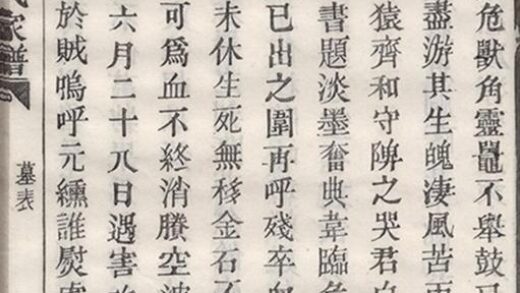 危獸角靈鼉不舉鼓
盡游其生魄淒風苦雨
猿齊和守陴之哭君
書題淡墨奮典韋臨危
已出之圍再呼殘卒
未休生死無移金石
可為血不終消賸空波
六月二十八日遇害
於賊嗚呼元纁誰熨
墓表
家譜